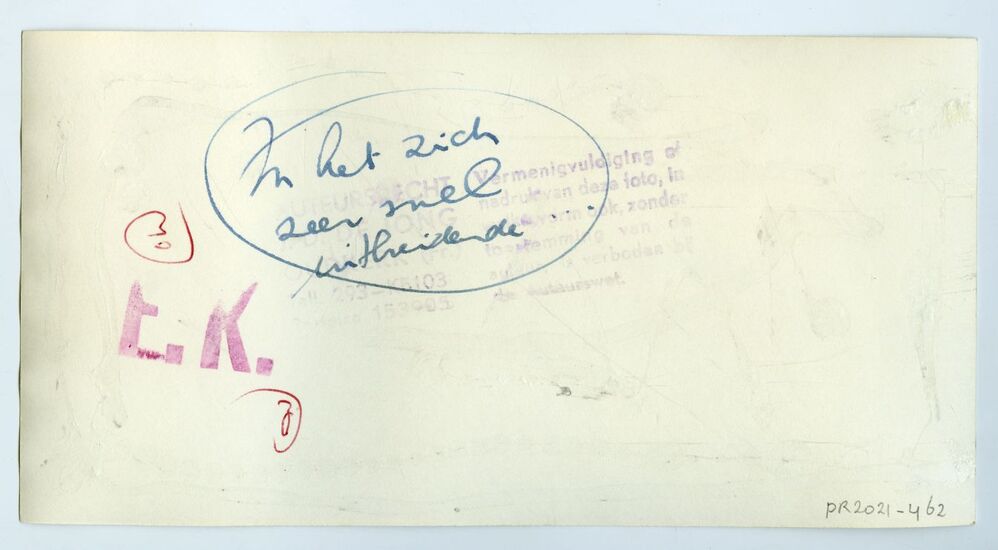 In het zich
zeer snel
uitbreidende
AUTEURSRECHT
JONG
103
153905
Vermenigvuldiging of
nadruk van deze foto, in
vorm ook, zonder
toestemming van de
verboden bij
de auteurswet.
t.K.
PR2021-462